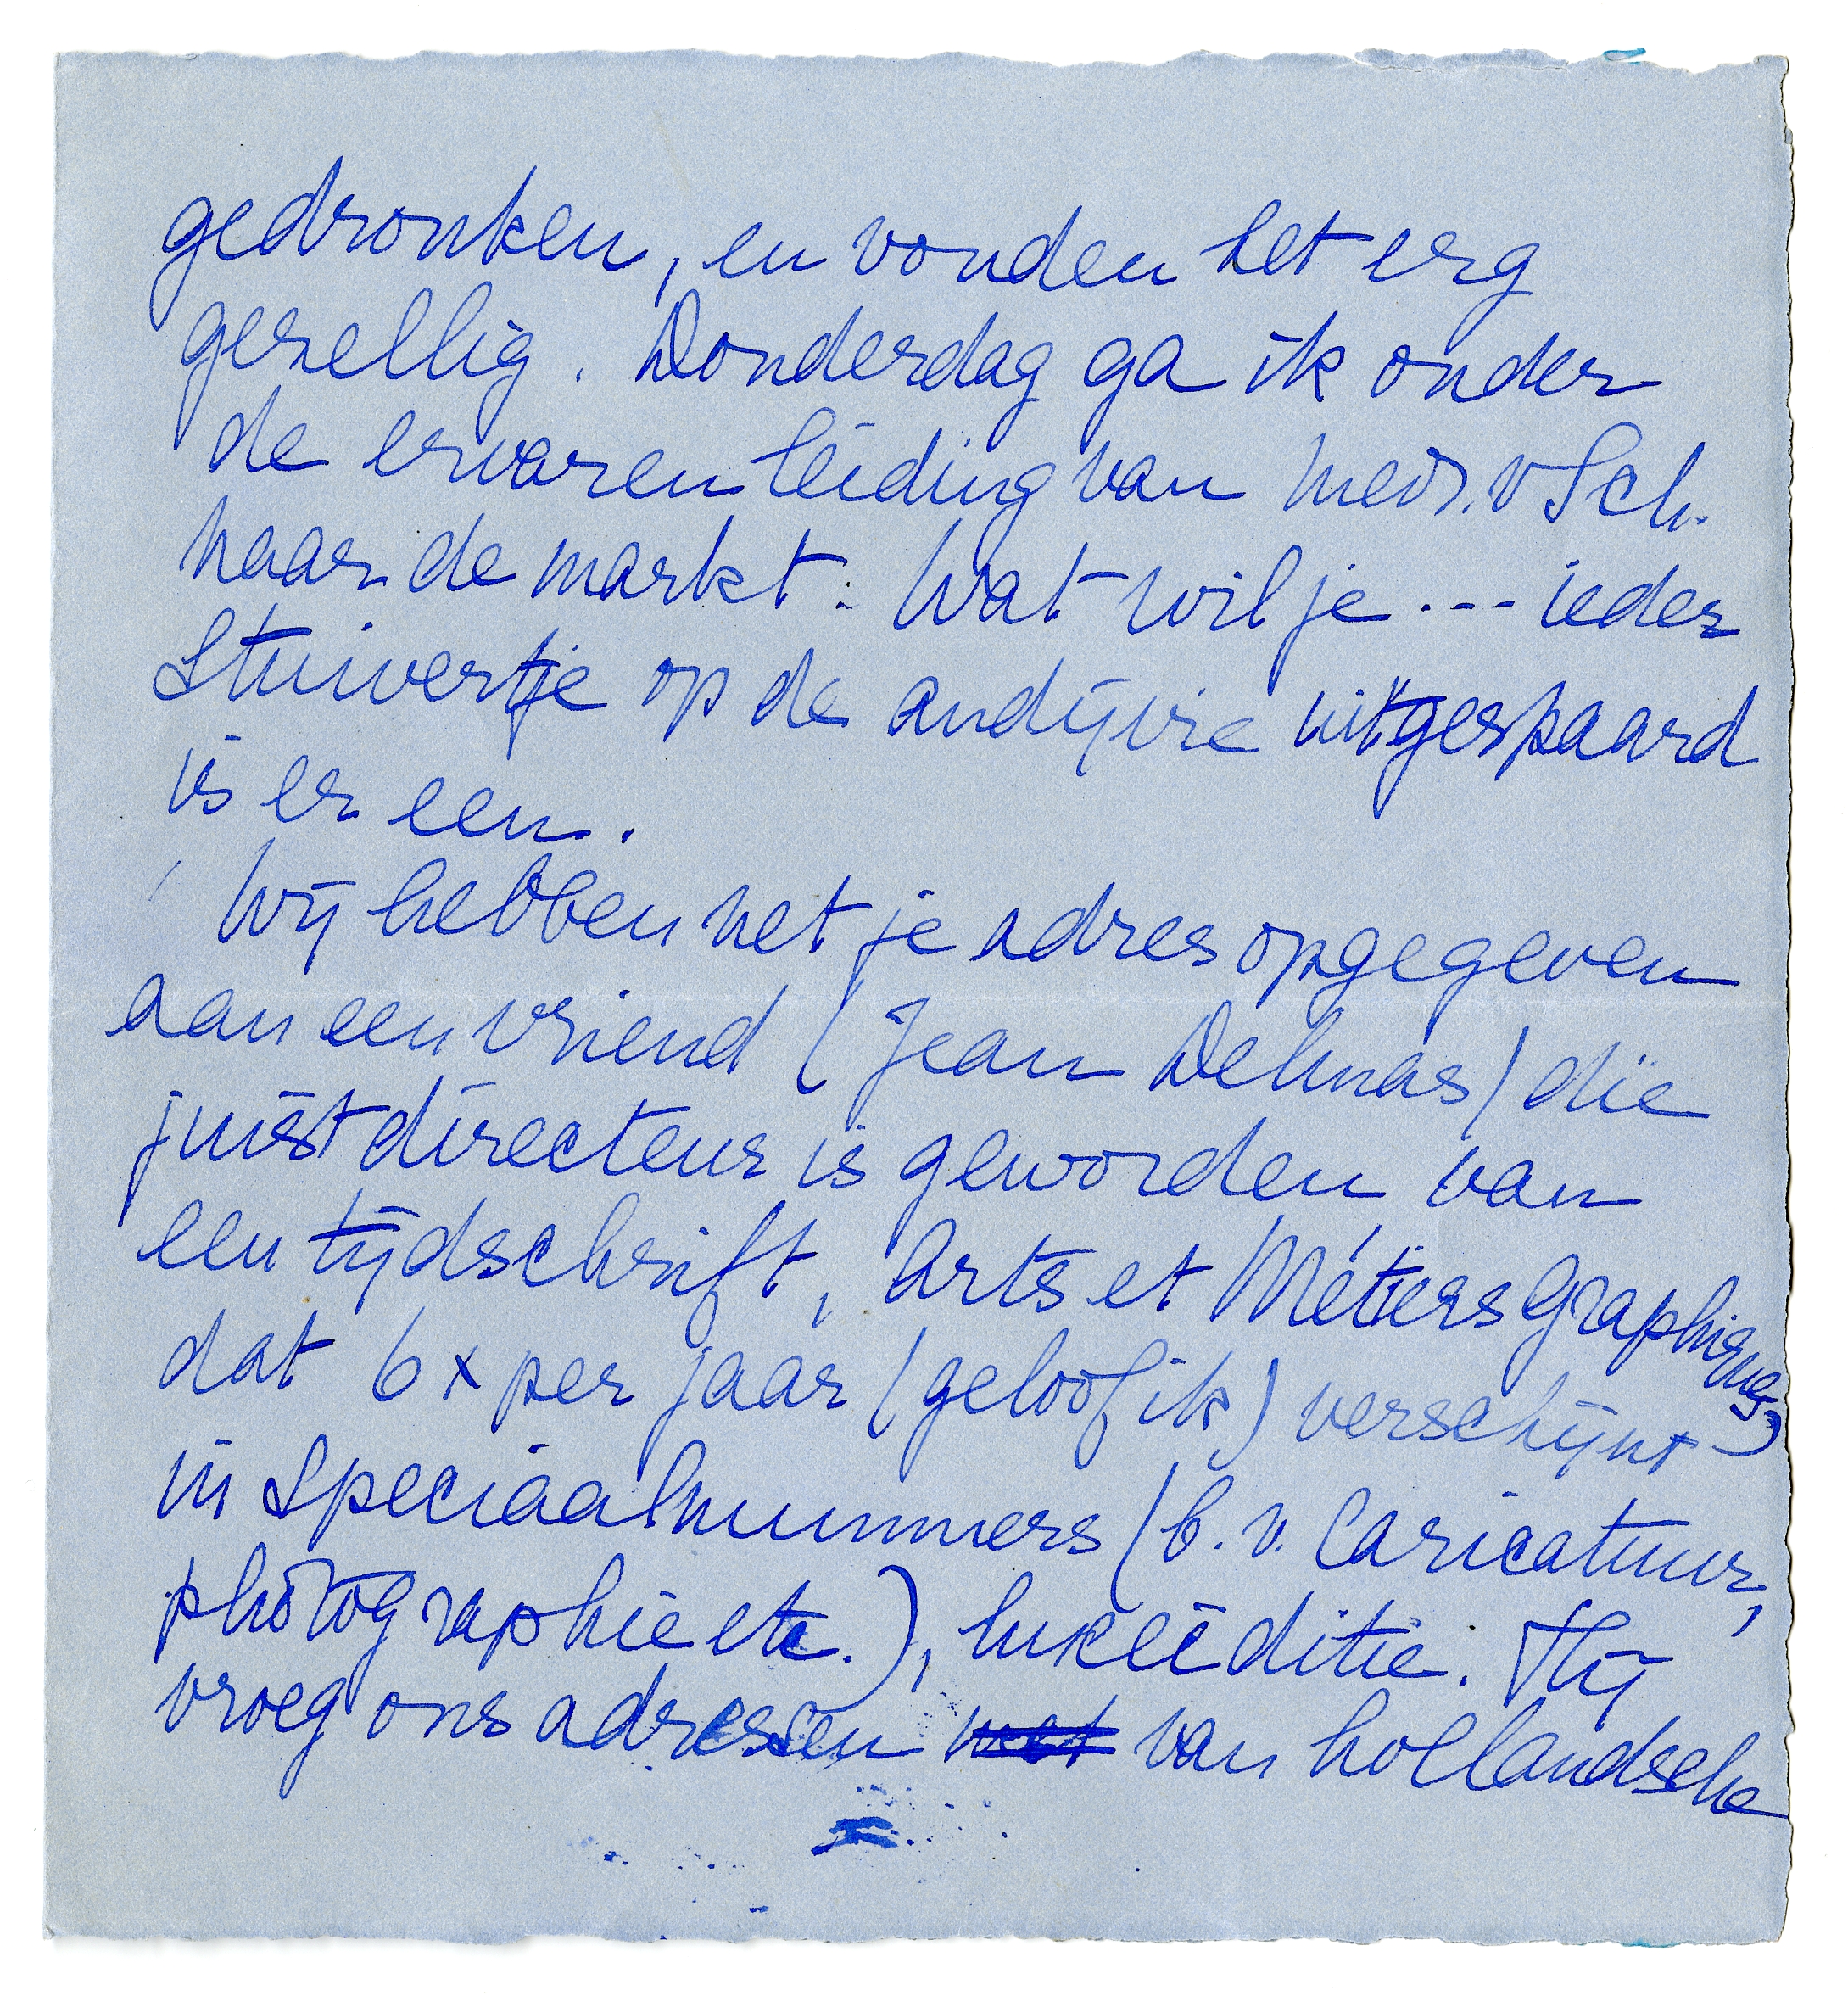 gedronken, en vonden het erg
gezellig. Donderdag ga ik onder
de ervaren leiding van mevr. v Sch.
naar de markt. Wat wil je --- ieder
stuivertje op de andijvie uitgespaard
is er een.
Wij hebben net je adres opgegeven
aan een vriend (Jean Delmas) die
juist directeur is geworden van
een tijdschrift, Arts et Métiers Graphiques,
dat 6 x per jaar (geloof ik) verschijnt
in speciaalnummers (b.v. Caricatuur,
photographie etc.), luxe editie. Hij
vroeg ons adressen van hollandsche